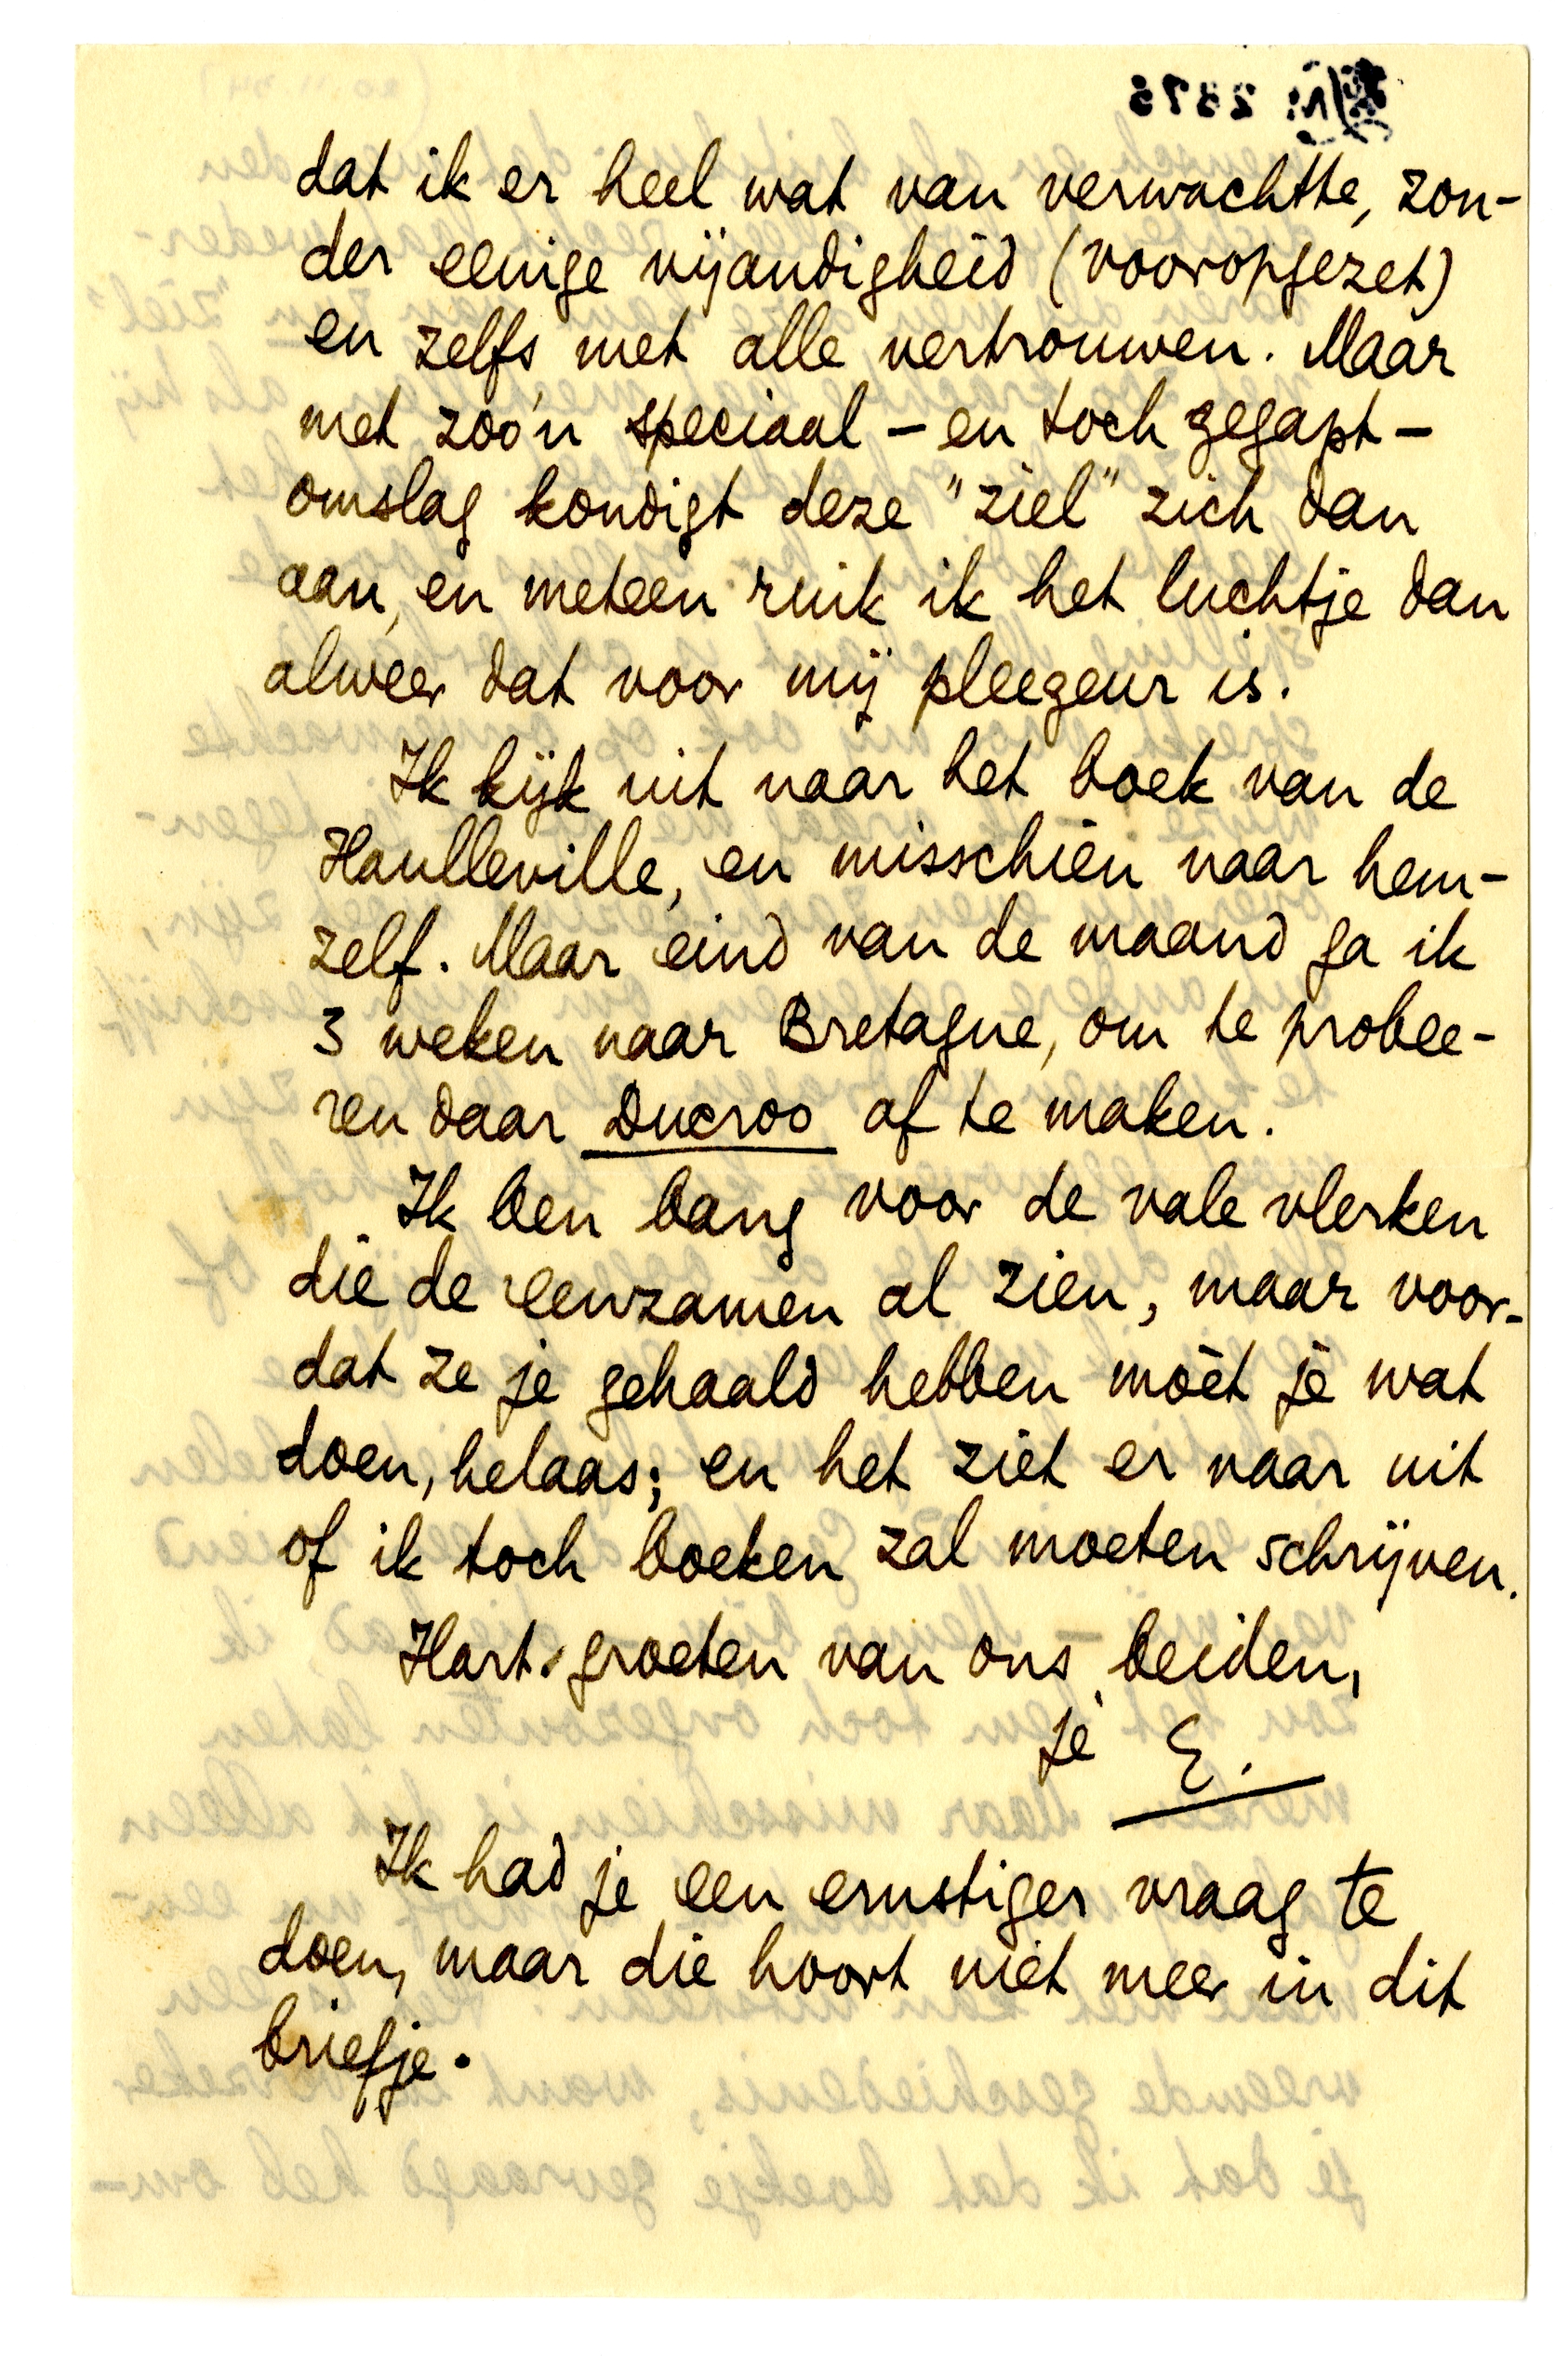 dat ik er heel wat van verwachtte, zon-
der eenige vijandigheid (vooropgezet)
en zelfs met alle vertrouwen. Maar
met zoo'n speciaal – en toch gegapt –
omslag kondigt deze "ziel" zich dan
aan, en meteen ruik ik het luchtje dan
alweer dat voor mij pleegeur is.
Ik kijk uit naar het boek van de
Haulleville, en misschien naar hem-
zelf. Maar eind van de maand ga ik
3 weken naar Bretagne, om te probee-
ren daar Ducroo af te maken.
Ik ben bang voor de vale vlerken
die de eenzamen al zien, maar voor-
dat ze je gehaald hebben mòèt je wat
doen, helaas; en het ziet er naar uit
of ik toch boeken zal moeten schrijven.
Hart. groeten van ons beiden,
je E.
Ik had je een ernstiger vraag te
doen, maar die hoort niet meer in dit
briefje.